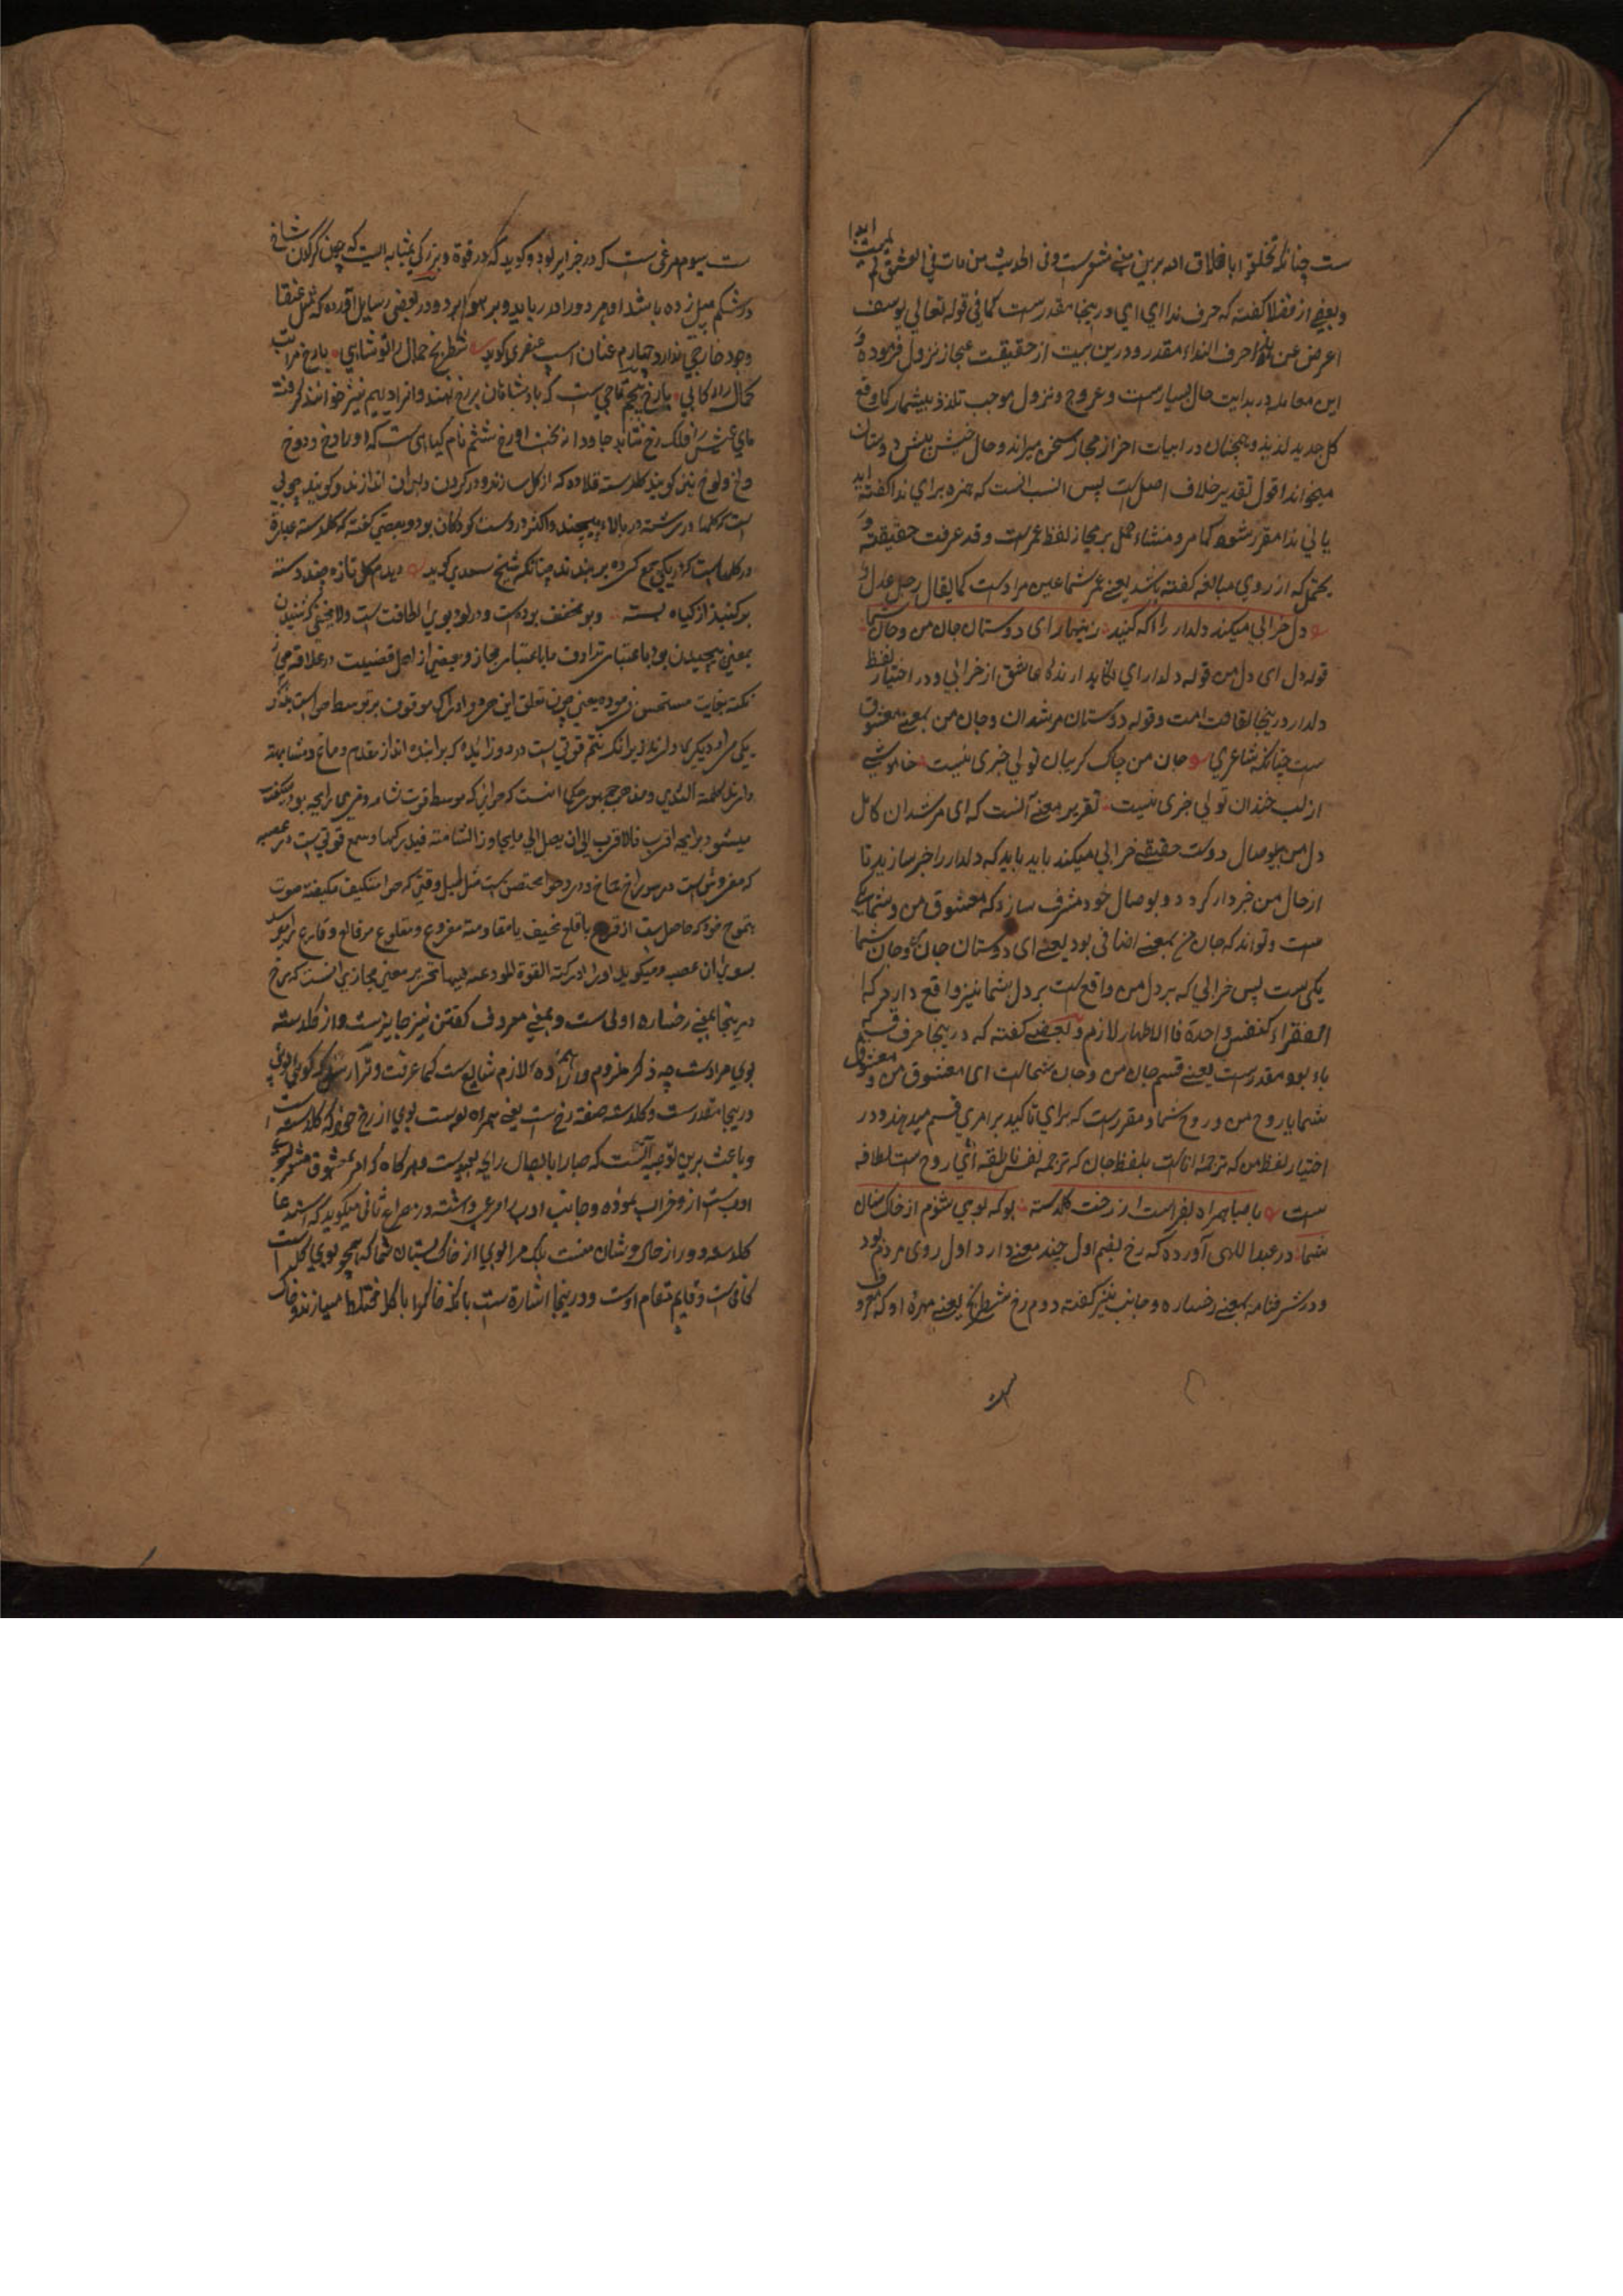 ست چنانکه تخلقوا باخلاق الله برین معنی مشعرست و فی الحدیث من مات فی العشق لم یمت ابدا
و بعضی از فضلا گفته که حرف ندا ای ای درینجا مقدرست کما فی قوله تعالی یوسف
اعرض عن هذا حرف النداء مقدر و درین بیت از حقیقت بمجاز نزول فرموده و
این معامله در بدایت حال بسیارست و عروج و نزول موجب تلذذ بیشمار کما وقع
کل جدید لذیذ و همچنان در ابیات اخر از مجاز سخن میراند و حال خیش پیش دوستان
میخواند اقول تقدیر خلاف اصل است پس انسب انست که همزه برای ندا گفته اید
یا نی ندا مقرر شود کما مر و منشاء حمل بر مجاز لفظ عمرست و قد عرفت حقیقته و
یحتمل که از روی مبالغه گفته باشد یعنی عمر شما عین مرادست کما یقال رجل عدل و
دل خرابی میکند دلدار را آگه کنید زینهار ای دوستان جان من و جان شما
قوله دل ای دل من قوله دلدار ای عاشق از خرابی و در اختیار لفظ
دلدار درینجا لقافت است و قوله دوستان مرشدان و جان من بمعنی معشوق
ست چنانکه شاعری جان من چاک گریبان تو بی خبری نیست خاموشی
از لب خندان تو بی خبری نیست تقریر معنی آنست که ای مرشدان کامل
دل من بوصال دوست حقیقی خرابی میکند باید باید که دلدار را خبر سازید تا
از حال من خبردار گردد و بوصال خود مشرف سازد که معشوق من و شما یکی
ست و تواند که جان من بمعنی اضافی بود یعنی ای دوستان جان من و جان شما
یکی ست پس خرابی که بر دل من واقع است بر دل شما نیز واقع دارد که
الفقراء کنفس واحدة فالاظهار لازم و بعضی گفته که درینجا حرف قسم
باء بود مقدرست یعنی قسم جان من و جان شماست ای معشوق من و معشوق
شما یا روح من و روح شما و مقررست که برای تاکید بر امری قسم میدهند و در
اختیار لفظ من که ترجمه اناست بلفظ جان که ترجمه نفس ناطقه ای روح ست لطافه
ست با صبا همراه بفرست از رخت گلدسته بوکه بویی بشنوم از خاک بستان
شما در عبداللهی آورده که رخ بضم اول چند معنی دارد اول روی مردم بود
و در شرفنامه بمعنی رخساره و جانب نیز گفته دوم رخ شطرنج یعنی مهره او که معروف
ست سیوم مرغی ست که در جزایر بود و گوید که در قوة و بزرگی بمثابه ایست که چون کرگدن شاخ
در شکم پیل زده باشد او هر دو را در رباید و بر هوا برد و در بعضی رسایل آورده که مثل عنقا
وجود خارجی ندارد چهارم عنان اسپ عنصری گوید شطرنج جمال را تو شاهی یا رخ مراتب
کمال راه کابی یا رخ پنجم تاجی ست که بادشاهان بر رخ نهند و افراد بیم نیز خوانند گرفته
جای عشیش فلک رخ نتابد جاودانه بخت او رخ ششم نام گیاهی ست که او را دخ و دوخ
و لخ و لوخ نیز گویند گلدسته قلاده که از گل سازند و در گردن دلبران اندازند و گویند چوبی
ست که گلها در رشته در بالاء پیچند و اکثر در دست کودکان بود و بعضی گفته که گلدسته عبارة
در گلهاست که در یکی جمع کرده بر بندند چنانکه شیخ سعدی گوید دیدم گل تازه چند دسته
بر گنبذ از گیاه بسته و بو مخفف بوده ست و در بود بوی را لطافت ست ولا یخفی شنیدن
بمعنی پیچیدن بود یا باعتبار ترادف یا باعتبار مجاز و بعضی از اهل فضیلت در علاقه مجاز
نکته بغایت مستحسن فرموده یعنی چون تعلق این هر دو ادراک موقوف بر توسط هواست بذکر
یکی مراد دیگری دارند زیرا که شم قوتی ست در دو زائده که برآینده انداز مقدم دماغ و مشابهه
دارند بحلمة الثدی و مذهب جمهور حکما انست که هوایی که متوسط قوت شامه و ذی رایحه بود متکیف
میشود برایحه اقرب فالاقرب الی ان یصل الی ما یجاور الشامة فیدرکها و سمع قوتی ست در عصبه
که مفروش است در سوراخ صماخ و در و هوا محتقن ست مثل طبل وقتی که هوا متکیف بکیفیة صوت
بتموج خود که حاصل ست از قرع یا قلع عنیف با مقاومة مقروع و مقلوع مر قالع و قارع را برسد
بسوی آن عصبه و میکوبد او را ادرکته القوة المودعة فیها تحریر معنی مجازی انست که رخ
درینجا بمعنی رخساره اولی ست و بمعنی معروف گفتن نیز جایزست و از گلدسته
بوی مرادست چه ذکر ملزوم و ارادة لازم شایع ست کما عرفت و ترا رسد که گویی بوی
درینجا مقدرست و گلدسته صفة رخ ست یعنی همراه بوست بوی از رخ خود که گلدسته است
و باعث برین توجیه آنست که صبا را بایصال رایحه نسبت و هرگاه که امر بمعشوق مشعر بسوء
ادب ست ازو خراب نموده و جانب ادب را مرعی داشته در مصراع ثانی میگوید که استدعا
گلدسته دور از حال درویشان منست بلکه مرا بویی از خاک بستان شما که همچو بوی گل است
کافی ست و قایم مقام اوست و درینجا اشارة ست بانکه خاک را با گل مختلط میسازند و خاک